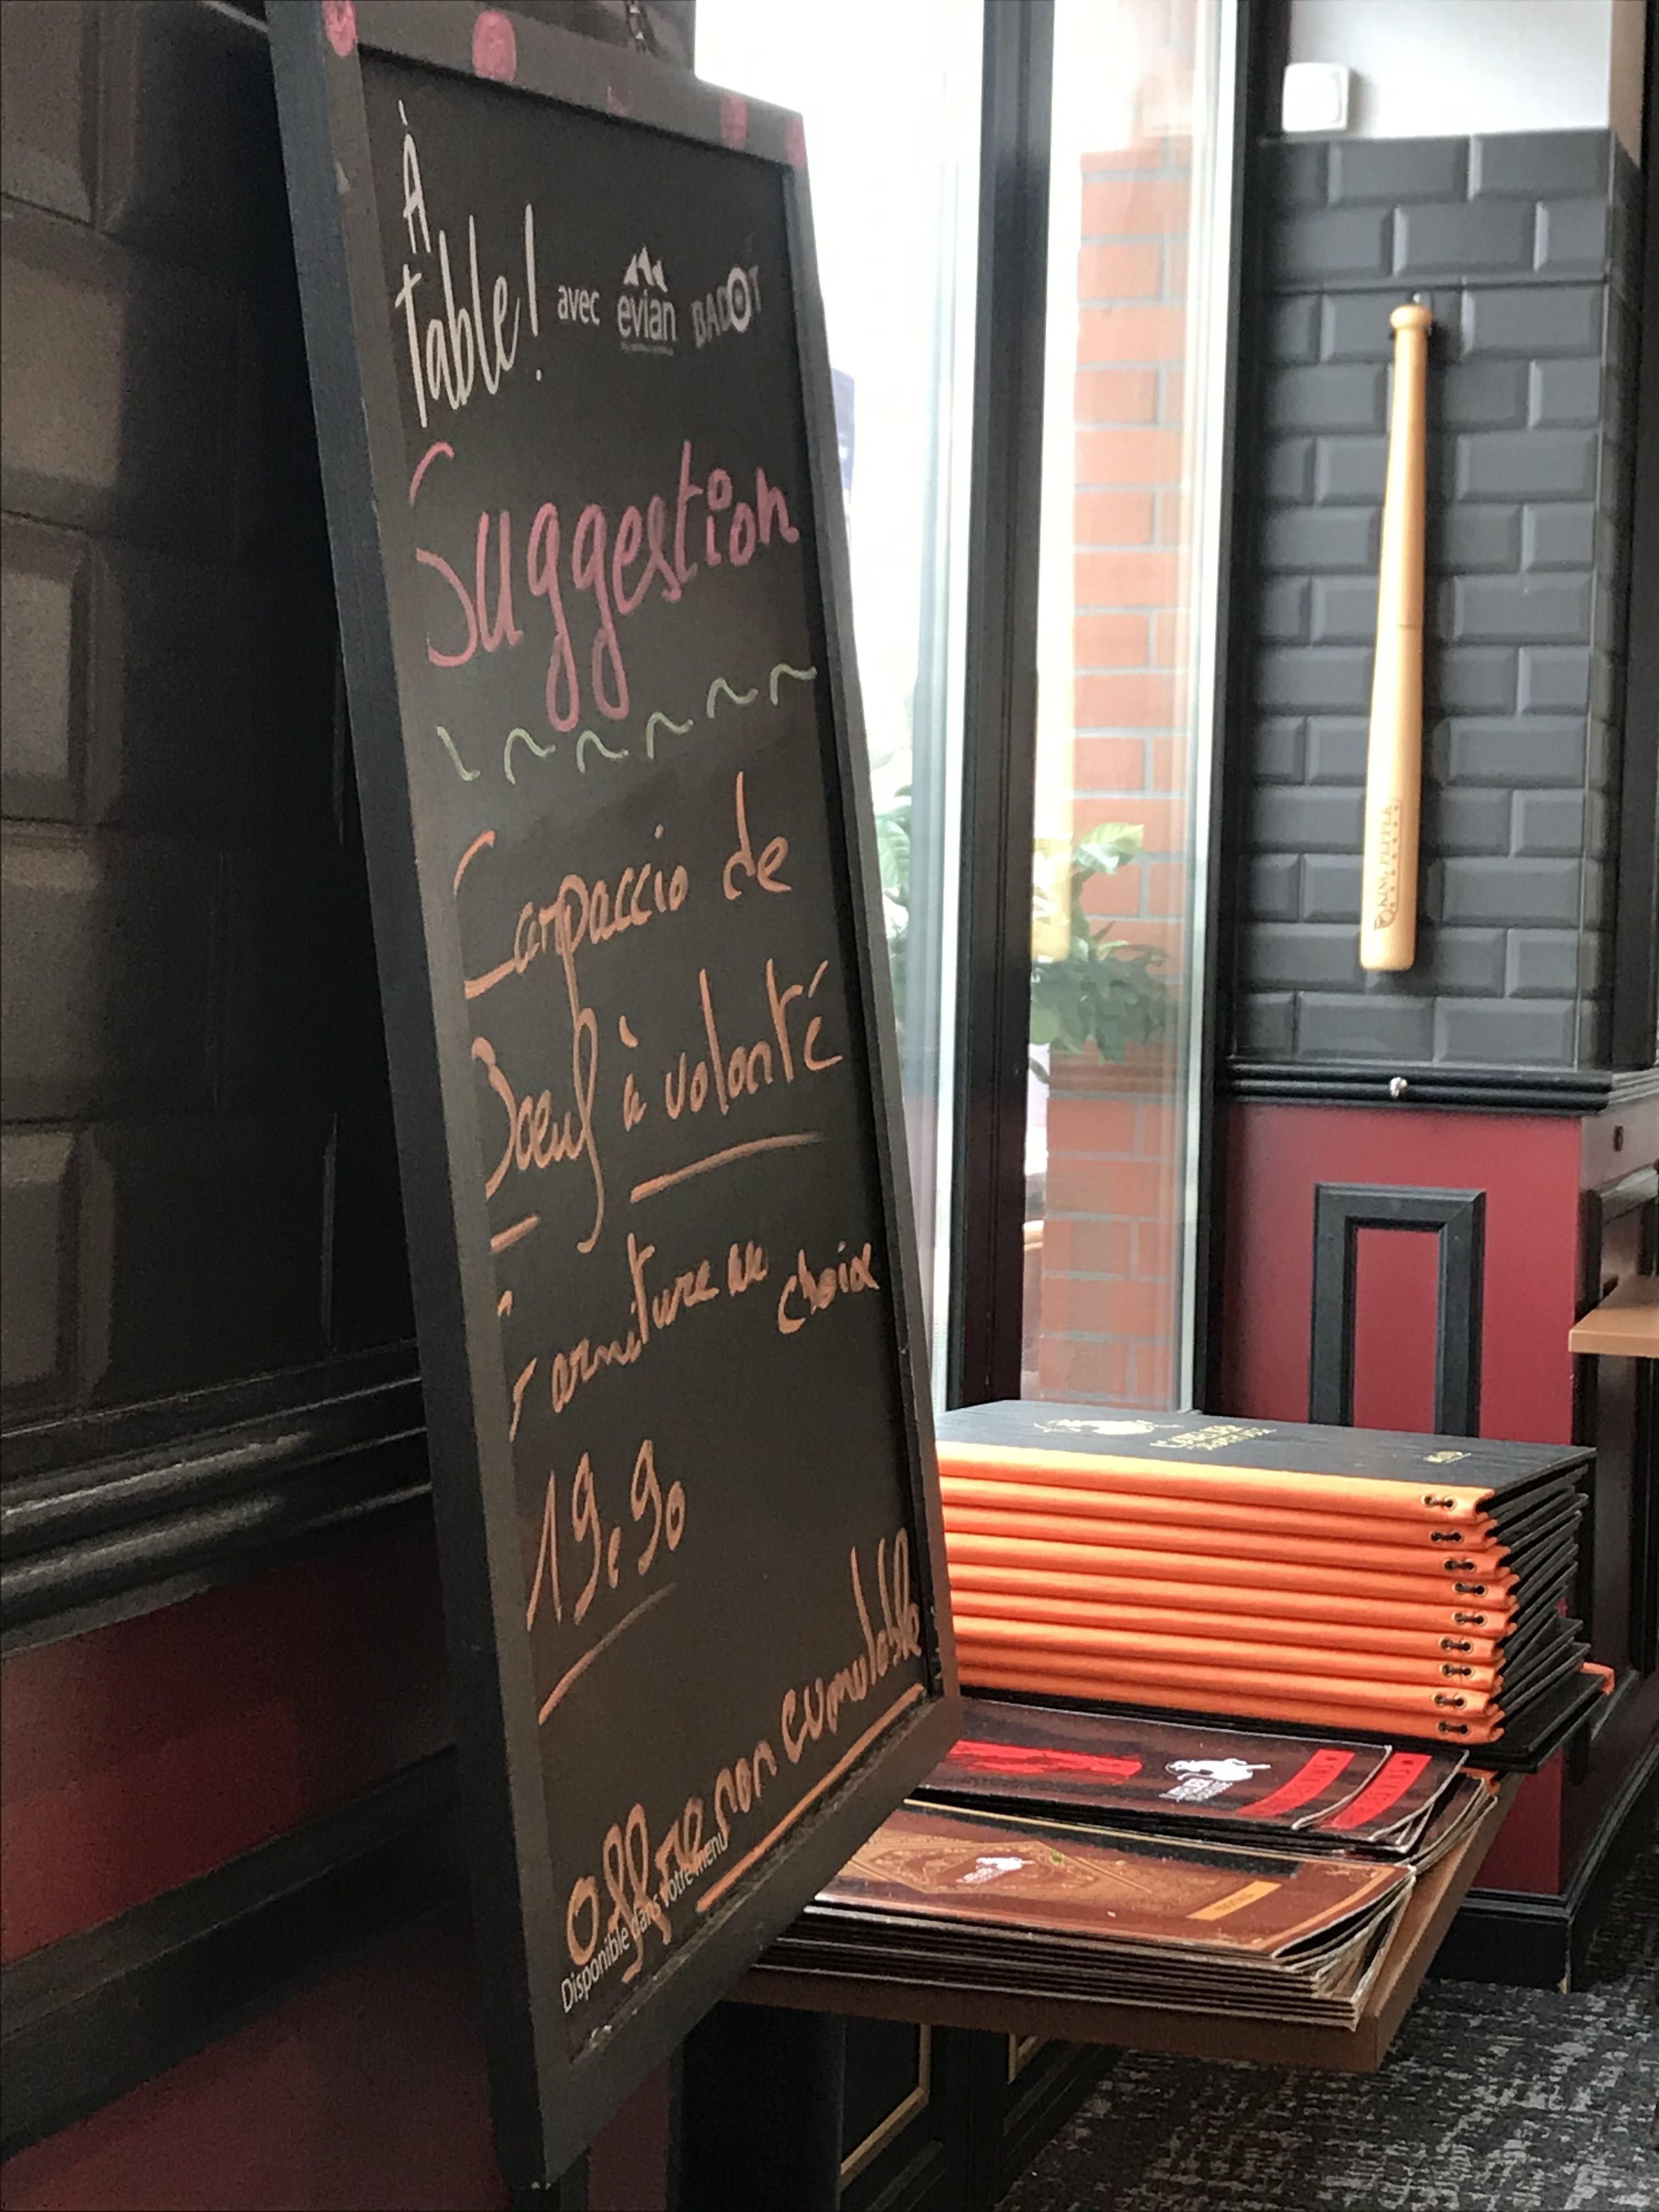 À
table! avec evian BADOIT
Suggestion
Carpaccio de
Boeuf à volonté
Garniture au choix
19,90
Offre non cumulable
Disponible dans votre menu
KING PEPPER